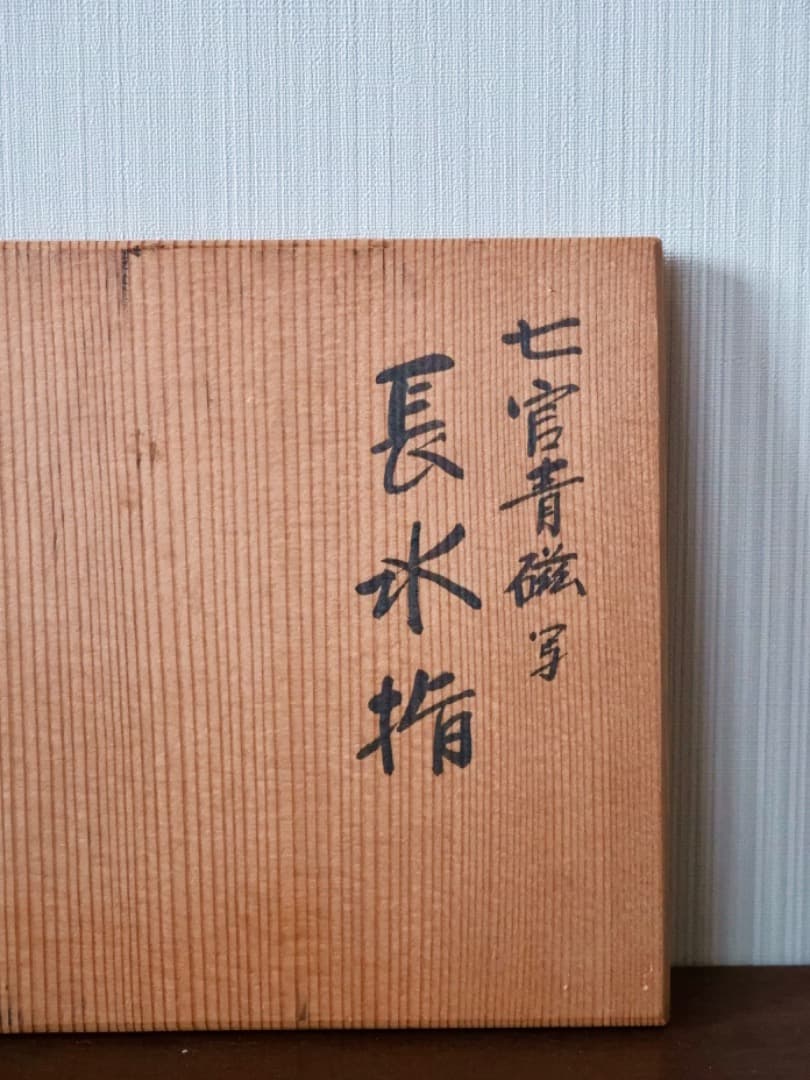 七官青磁写
長水指